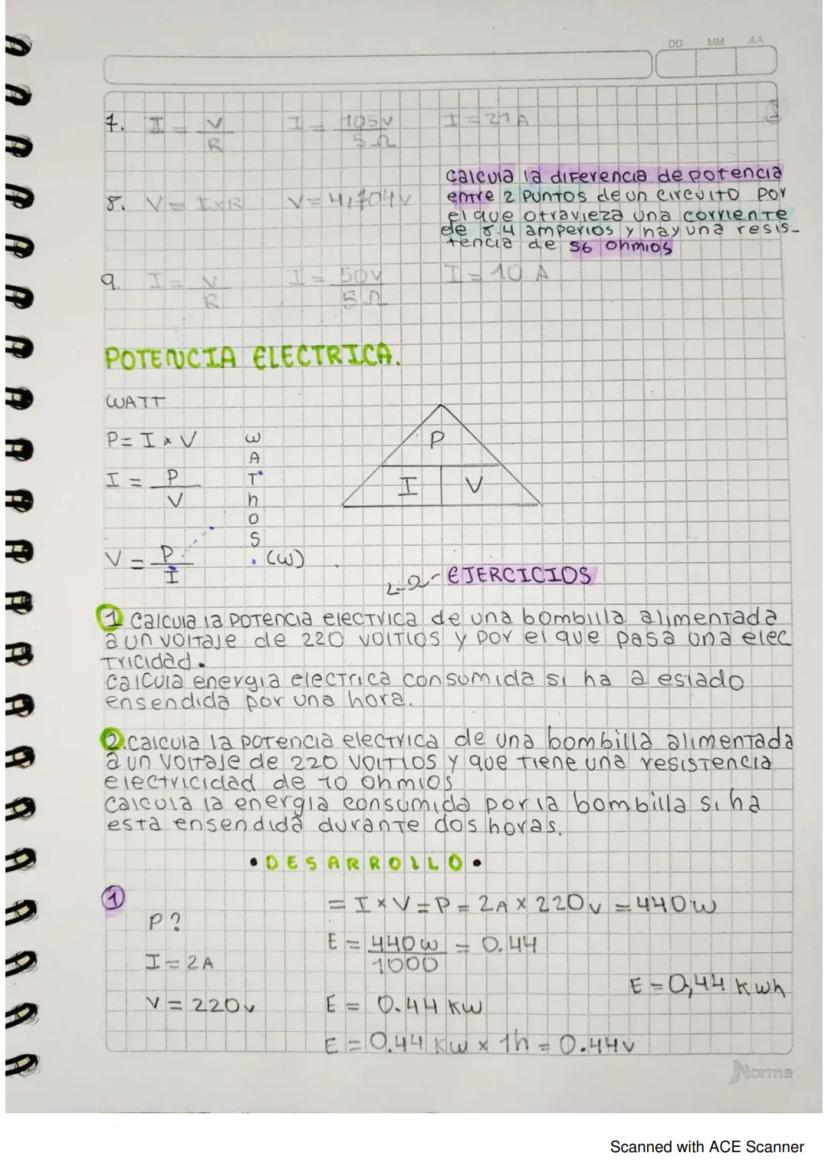 DD MM AA
7. I = V/R I = 105v/5Ω I = 21A
8. V = I×R V = 4,704v
calcula la diferencia de potencia
entre 2 puntos de un circuito por
el que otravieza una corriente
de 8.4 amperios y hay una resis-
tencia de 56 ohmios
9. I = V/R I = 50v/5Ω I = 10 A
POTENCIA ELECTRICA.
WATT
P = I × V
I = P/V
V = P/I
WATThOS
(W)
P
I V
EJERCICIOS
1 Calcula la potencia electrica de una bombilla alimentada
a un voltaje de 220 voltios y por el que pasa una elec
tricidad.
Calcula energia electrica consumida si ha a estado
ensendida por una hora.
2. Calcula la potencia electrica de una bombilla alimentada
a un voltaje de 220 voltios y que tiene una resistencia
electricidad de 10 ohmios
Calcula la energia consumida por la bombilla si ha
esta ensendida durante dos horas.
• DESARROLLO •
1
P?
I = 2A
V = 220v
= I × V = P = 2A × 220v = 440w
E = 440w/1000 = 0.44
E = 0,44 Kwh
E = 0.44 KW
E = 0.44 Kw × 1h = 0.44v
Norma
Scanned with ACE Scanner